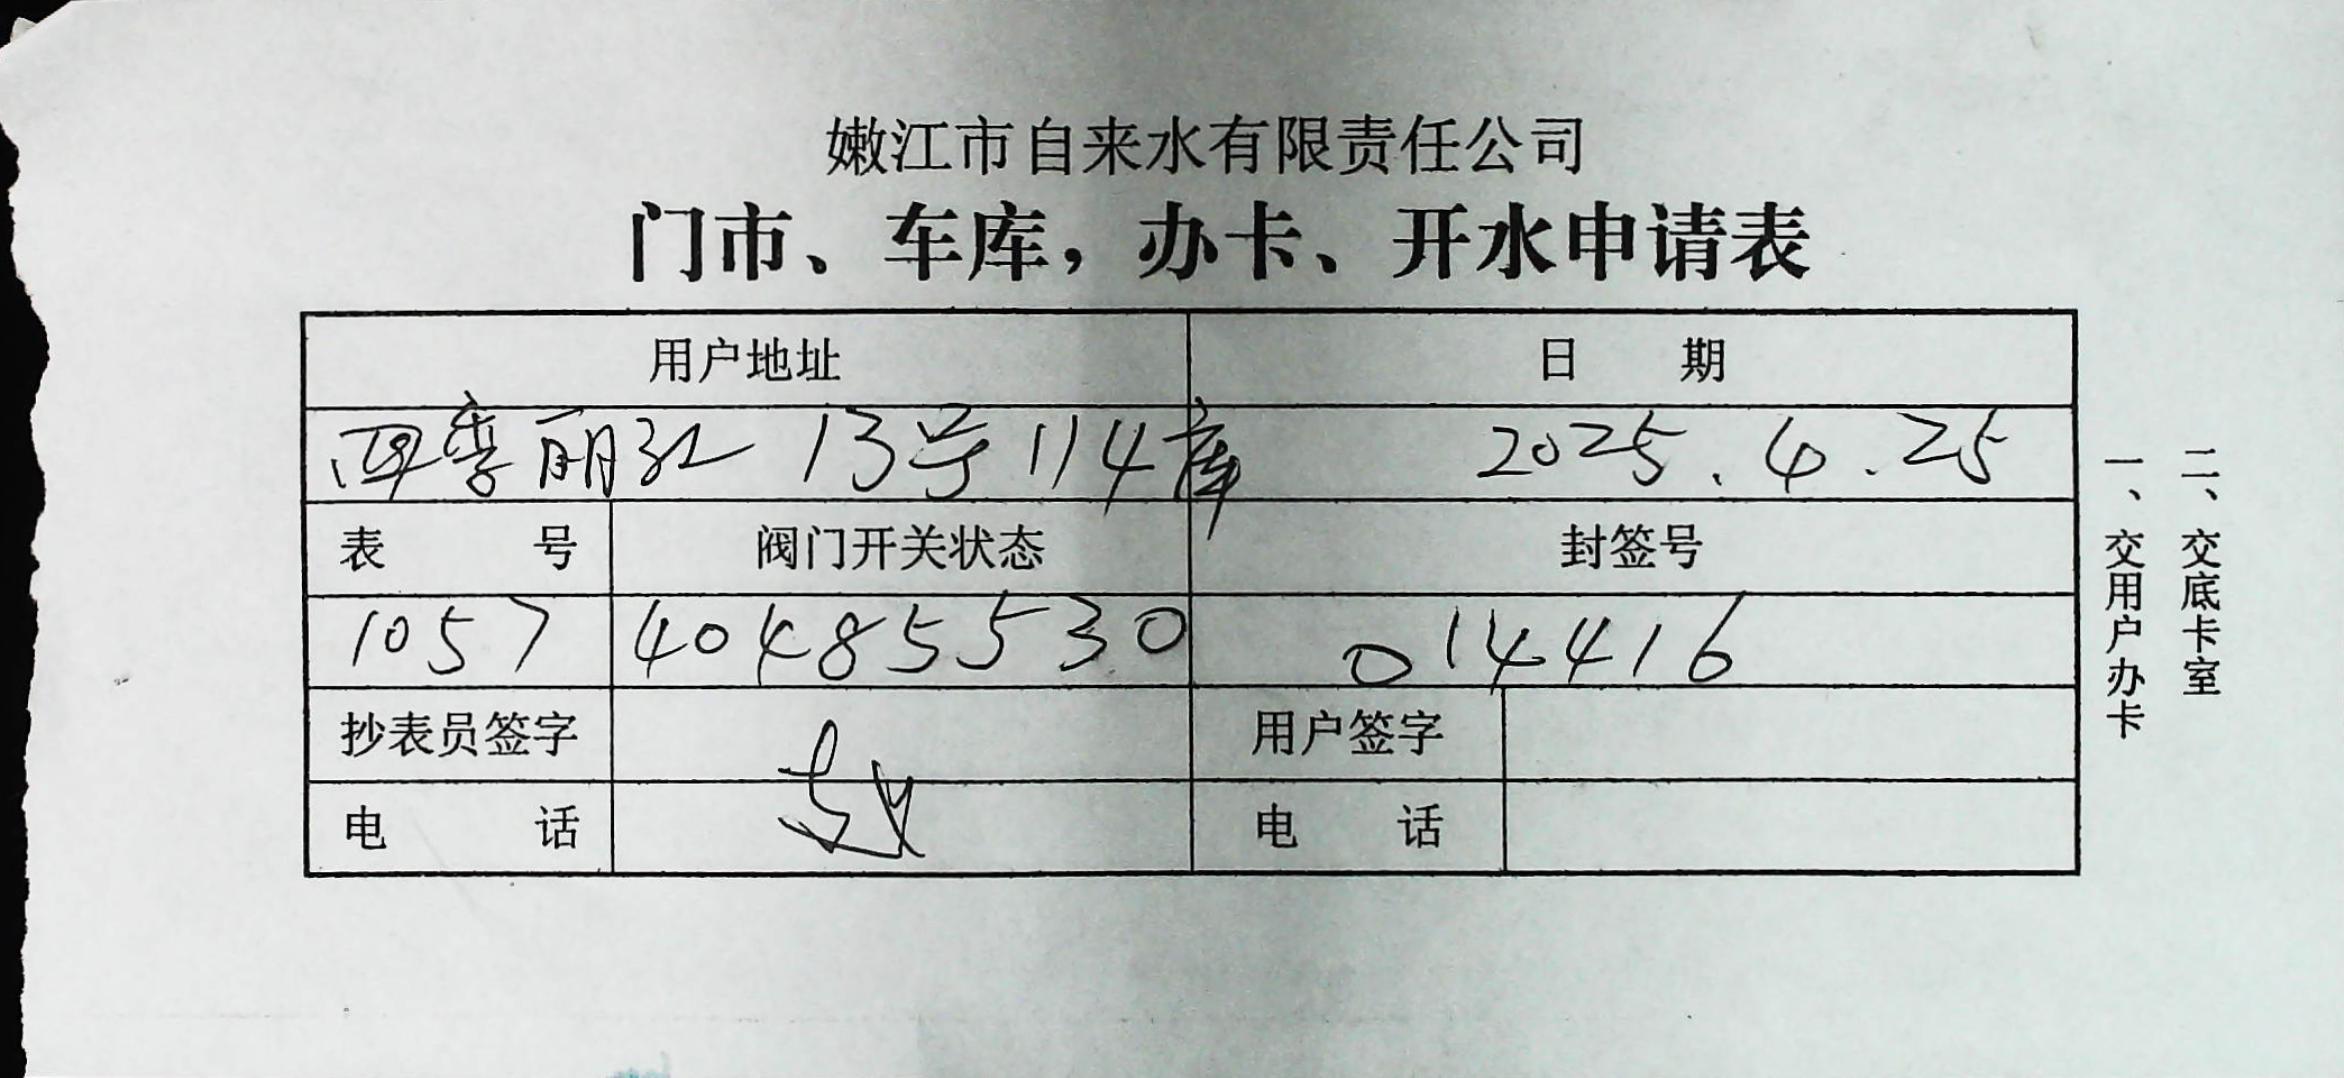 嫩江市自来水有限责任公司
门市、车库，办卡、开水申请表
用户地址 日 期
四季丽江 13号114库 2025.4.25
表 号 阀门开关状态 封签号
1057 40485530 014416
抄表员签字 用户签字
电 话 电 话
一、交用户办卡
二、交底卡室